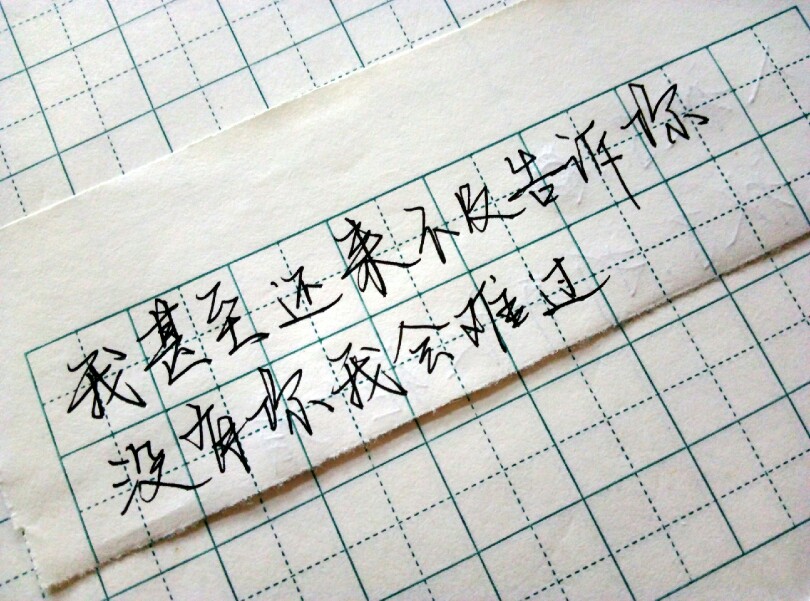 我甚至还来不及告诉你
没有你我会难过